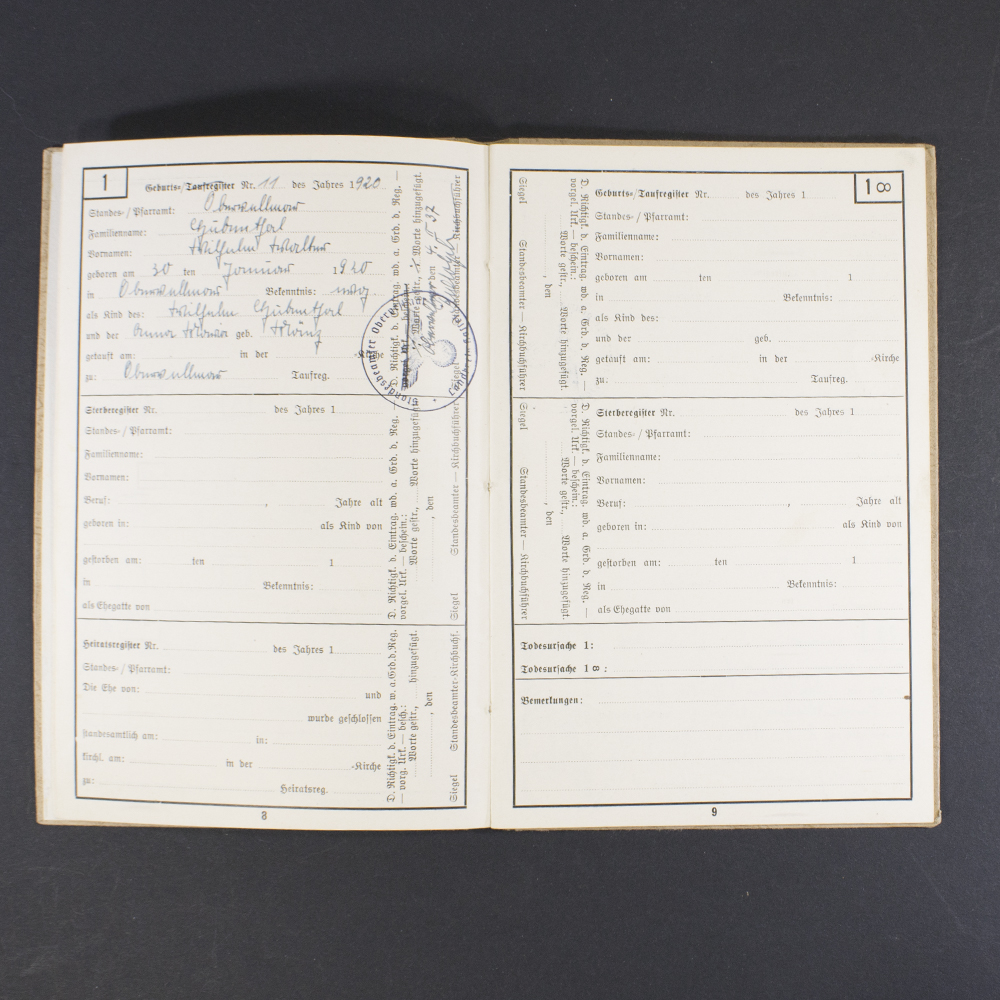 1
Geburts-/Taufregister Nr. 11 des Jahres 1920
Standes-/Pfarramt:
Familienname:
Vornamen: Wilhelm Walter
geboren am 30 ten Januar 1920
in Bekenntnis: evang
als Kind des: Wilhelm
und der Anna Maria geb.
getauft am: in der -Kirche
zu: Taufreg.
D. Richtigk. d. Eintrag. wd. a. Grd. d. Reg. —
Worte gestr., Worte hinzugefügt.
den 4. 37
Siegel Standesbeamter — Kirchbuchführer
Standesbeamter
Sterberegister Nr. des Jahres 1
Standes-/Pfarramt:
Familienname:
Vornamen:
Beruf: , Jahre alt
geboren in: als Kind von
gestorben am: ten 1
in Bekenntnis:
als Ehegatte von
D. Richtigk. d. Eintrag. wd. a. Grd. d. Reg. —
vorgel. Urk. — beschein.:
Worte gestr., Worte hinzugefügt.
, den
Siegel Standesbeamter — Kirchbuchführer
Heiratsregister Nr. des Jahres 1
Standes-/Pfarramt:
Die Ehe von: und
wurde geschlossen
standesamtlich am: in:
kirchl. am: in der -Kirche
zu: Heiratsreg.
D. Richtigk. d. Eintrag. w. a. Grd. d. Reg.
— vorg. Urk. — besch.:
Worte gestr., hinzugefügt.
, den
Siegel Standesbeamter-Kirchbuchf.
8
1 8
Geburts-/Taufregister Nr. des Jahres 1
Standes-/Pfarramt:
Familienname:
Vornamen:
geboren am ten 1
in Bekenntnis:
als Kind des:
und der geb.
getauft am: in der -Kirche
zu: Taufreg.
D. Richtigk. d. Eintrag. wd. a. Grd. d. Reg. —
vorgel. Urk. — beschein.:
Worte gestr., Worte hinzugefügt.
, den
Siegel Standesbeamter — Kirchbuchführer
Sterberegister Nr. des Jahres 1
Standes-/Pfarramt:
Familienname:
Vornamen:
Beruf: , Jahre alt
geboren in: als Kind von
gestorben am: ten 1
in Bekenntnis:
als Ehegatte von
D. Richtigk. d. Eintrag. wd. a. Grd. d. Reg. —
vorgel. Urk. — beschein.:
Worte gestr., Worte hinzugefügt.
, den
Siegel Standesbeamter — Kirchbuchführer
Todesursache 1:
Todesursache 1 8:
Bemerkungen:
9